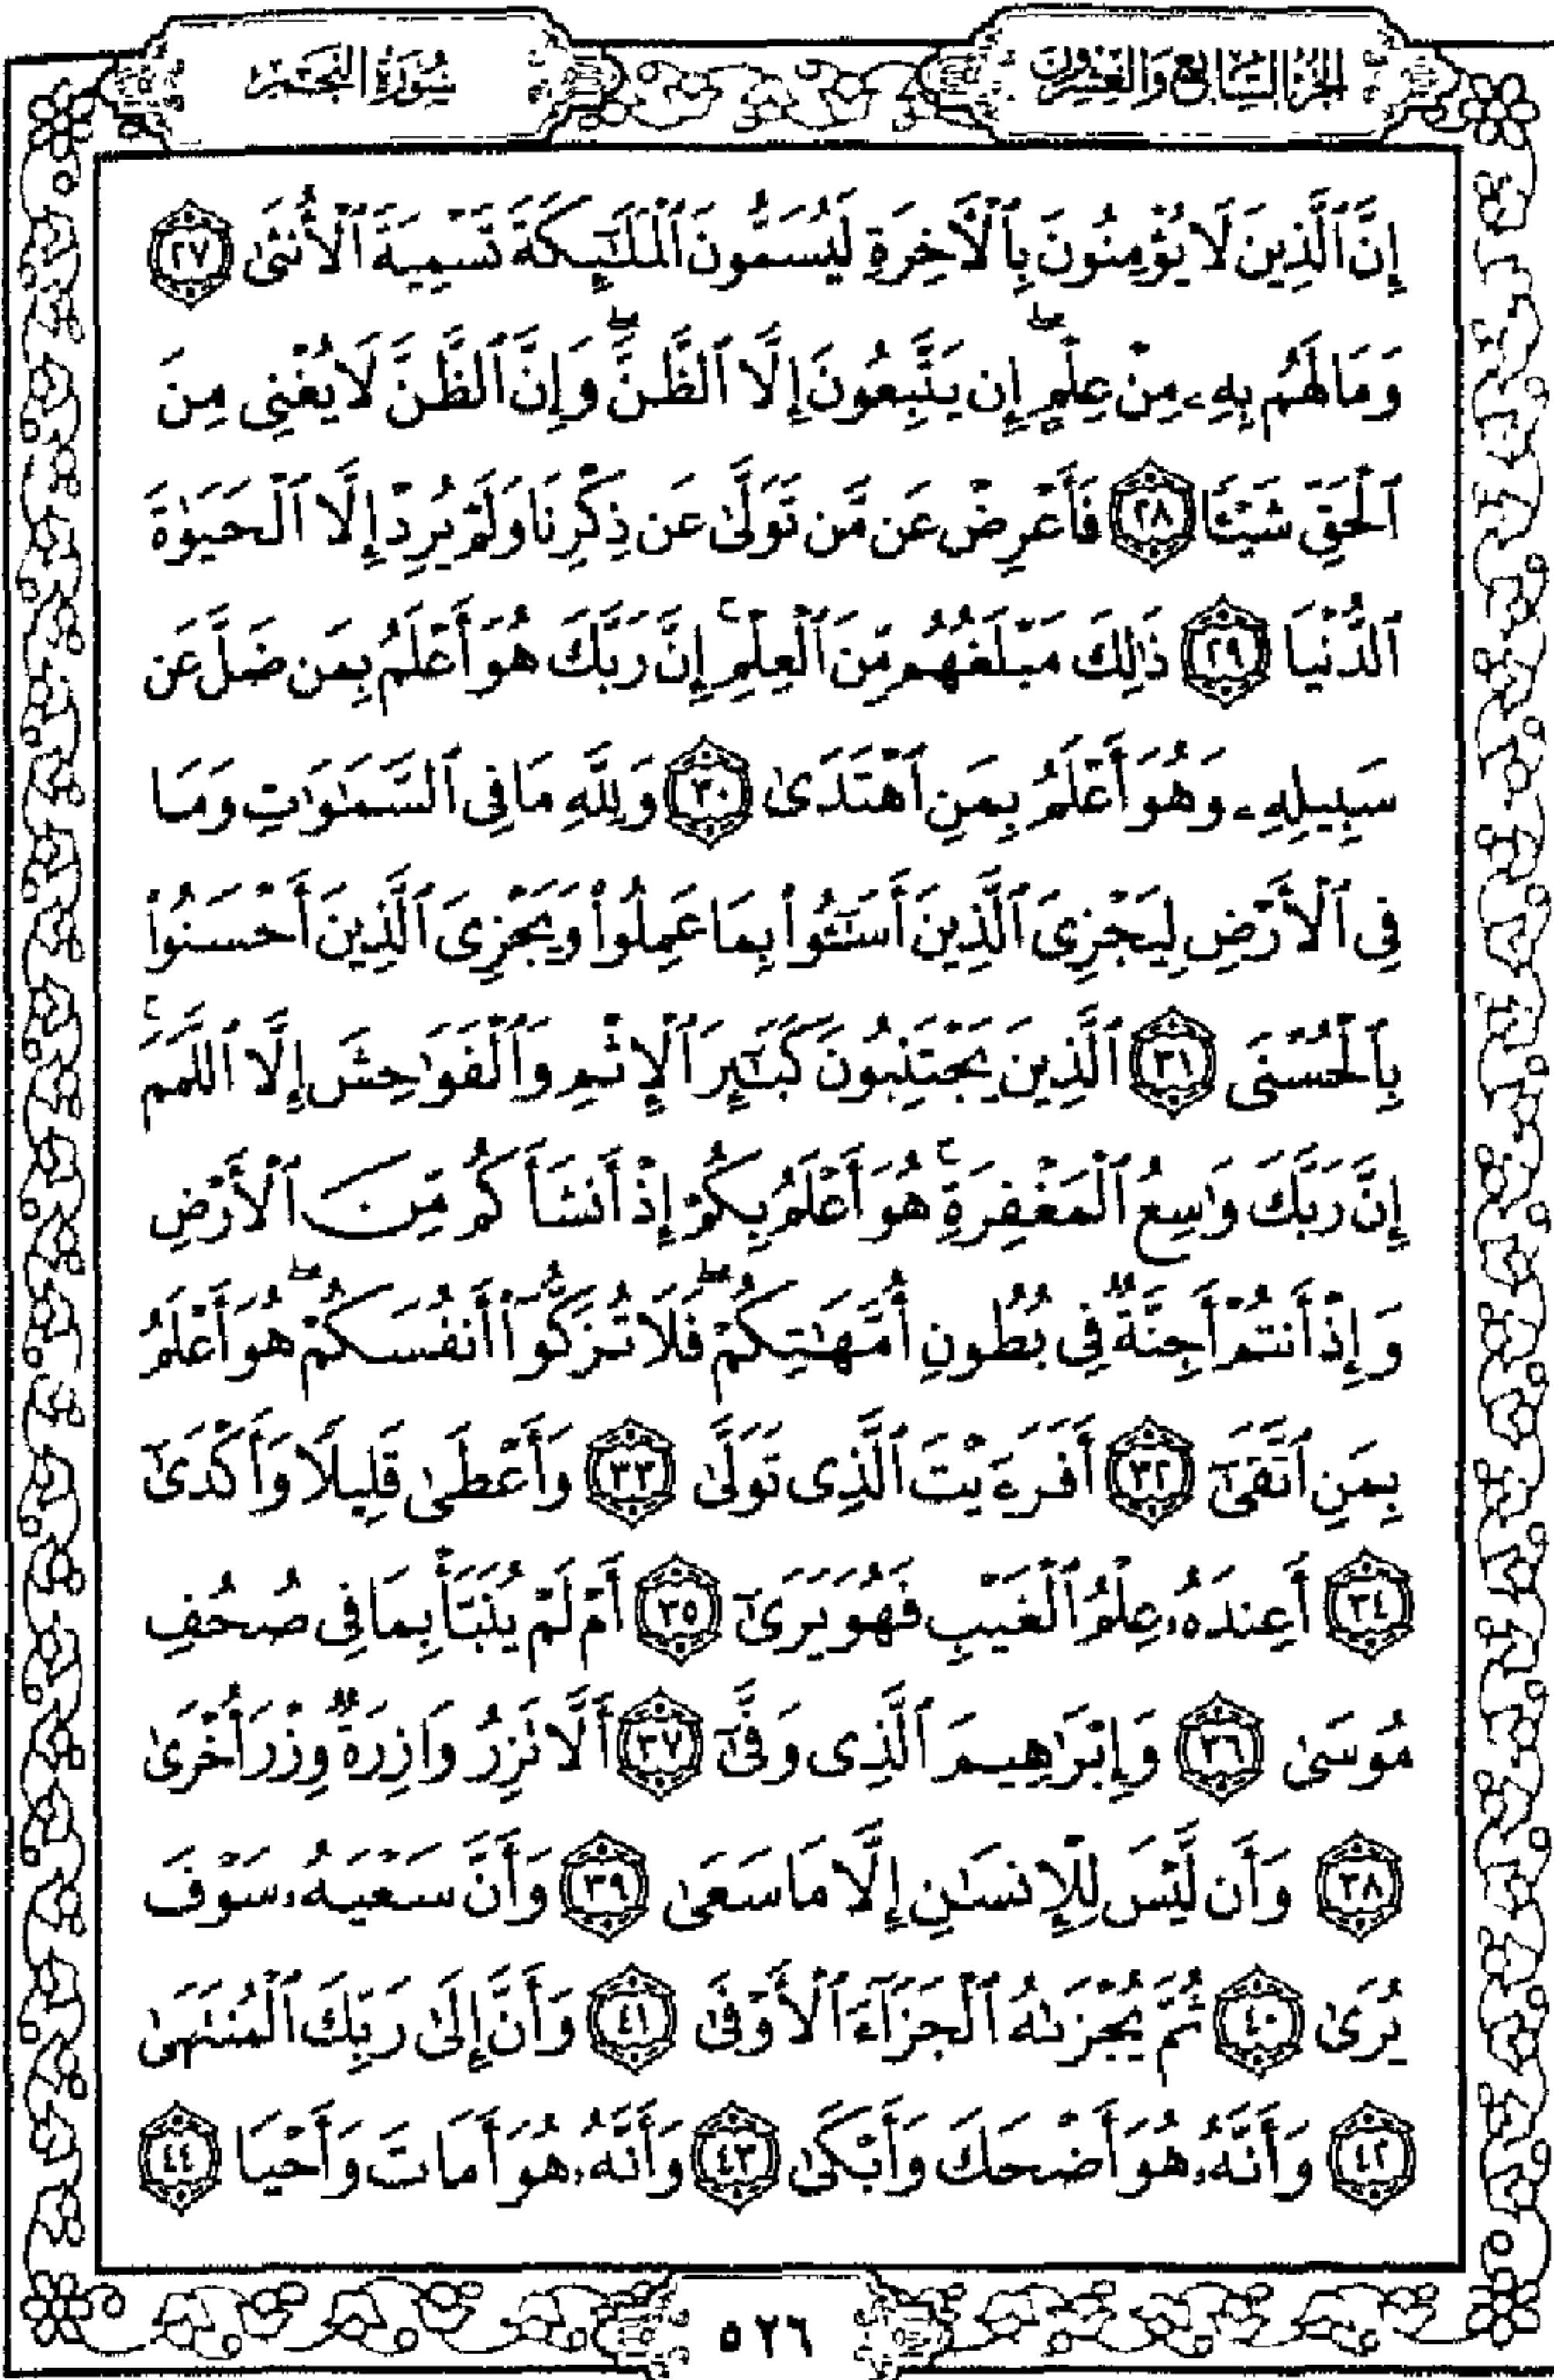 الجزء السابع والعشرون
سورة النجم
إِنَّ ٱلَّذِينَ لَا يُؤْمِنُونَ بِٱلْأَخِرَةِ لَيُسَمُّونَ ٱلْمَلَٰٓئِكَةَ تَسْمِيَةَ ٱلْأُنثَىٰ ٢٧
وَمَا لَهُم بِهِۦ مِنْ عِلْمٍ ۖ إِن يَتَّبِعُونَ إِلَّا ٱلظَّنَّ ۖ وَإِنَّ ٱلظَّنَّ لَا يُغْنِى مِنَ
ٱلْحَقِّ شَيْـًٔا ٢٨ فَأَعْرِضْ عَن مَّن تَوَلَّىٰ عَن ذِكْرِنَا وَلَمْ يُرِدْ إِلَّا ٱلْحَيَوٰةَ
ٱلدُّنْيَا ٢٩ ذَٰلِكَ مَبْلَغُهُم مِّنَ ٱلْعِلْمِ ۚ إِنَّ رَبَّكَ هُوَ أَعْلَمُ بِمَن ضَلَّ عَن
سَبِيلِهِۦ وَهُوَ أَعْلَمُ بِمَنِ ٱهْتَدَىٰ ٣٠ وَلِلَّهِ مَا فِى ٱلسَّمَٰوَٰتِ وَمَا
فِى ٱلْأَرْضِ لِيَجْزِىَ ٱلَّذِينَ أَسَٰٓـُٔوا۟ بِمَا عَمِلُوا۟ وَيَجْزِىَ ٱلَّذِينَ أَحْسَنُوا۟
بِٱلْحُسْنَى ٣١ ٱلَّذِينَ يَجْتَنِبُونَ كَبَٰٓئِرَ ٱلْإِثْمِ وَٱلْفَوَٰحِشَ إِلَّا ٱللَّمَمَ ۚ
إِنَّ رَبَّكَ وَٰسِعُ ٱلْمَغْفِرَةِ ۚ هُوَ أَعْلَمُ بِكُمْ إِذْ أَنشَأَكُم مِّنَ ٱلْأَرْضِ
وَإِذْ أَنتُمْ أَجِنَّةٌ فِى بُطُونِ أُمَّهَٰتِكُمْ ۖ فَلَا تُزَكُّوٓا۟ أَنفُسَكُمْ ۖ هُوَ أَعْلَمُ
بِمَنِ ٱتَّقَىٰٓ ٣٢ أَفَرَءَيْتَ ٱلَّذِى تَوَلَّىٰ ٣٣ وَأَعْطَىٰ قَلِيلًا وَأَكْدَىٰٓ
٣٤ أَعِندَهُۥ عِلْمُ ٱلْغَيْبِ فَهُوَ يَرَىٰٓ ٣٥ أَمْ لَمْ يُنَبَّأْ بِمَا فِى صُحُفِ
مُوسَىٰ ٣٦ وَإِبْرَٰهِيمَ ٱلَّذِى وَفَّىٰٓ ٣٧ أَلَّا تَزِرُ وَازِرَةٌ وِزْرَ أُخْرَىٰ
٣٨ وَأَن لَّيْسَ لِلْإِنسَٰنِ إِلَّا مَا سَعَىٰ ٣٩ وَأَنَّ سَعْيَهُۥ سَوْفَ
يُرَىٰ ٤٠ ثُمَّ يُجْزَىٰهُ ٱلْجَزَآءَ ٱلْأَوْفَىٰ ٤١ وَأَنَّ إِلَىٰ رَبِّكَ ٱلْمُنتَهَىٰ
٤٢ وَأَنَّهُۥ هُوَ أَضْحَكَ وَأَبْكَىٰ ٤٣ وَأَنَّهُۥ هُوَ أَمَاتَ وَأَحْيَا ٤٤
٥٢٦